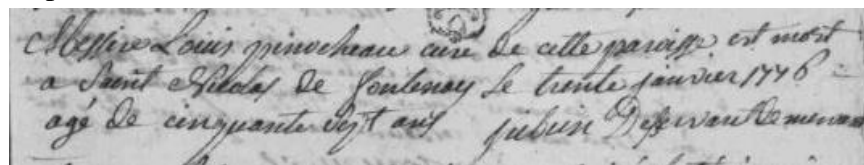 Messire Louis pinocheau curé de cette paroisse est mort
a Saint Nicolas de fontenay le trente janvier 1776
agé de cinquante sept ans